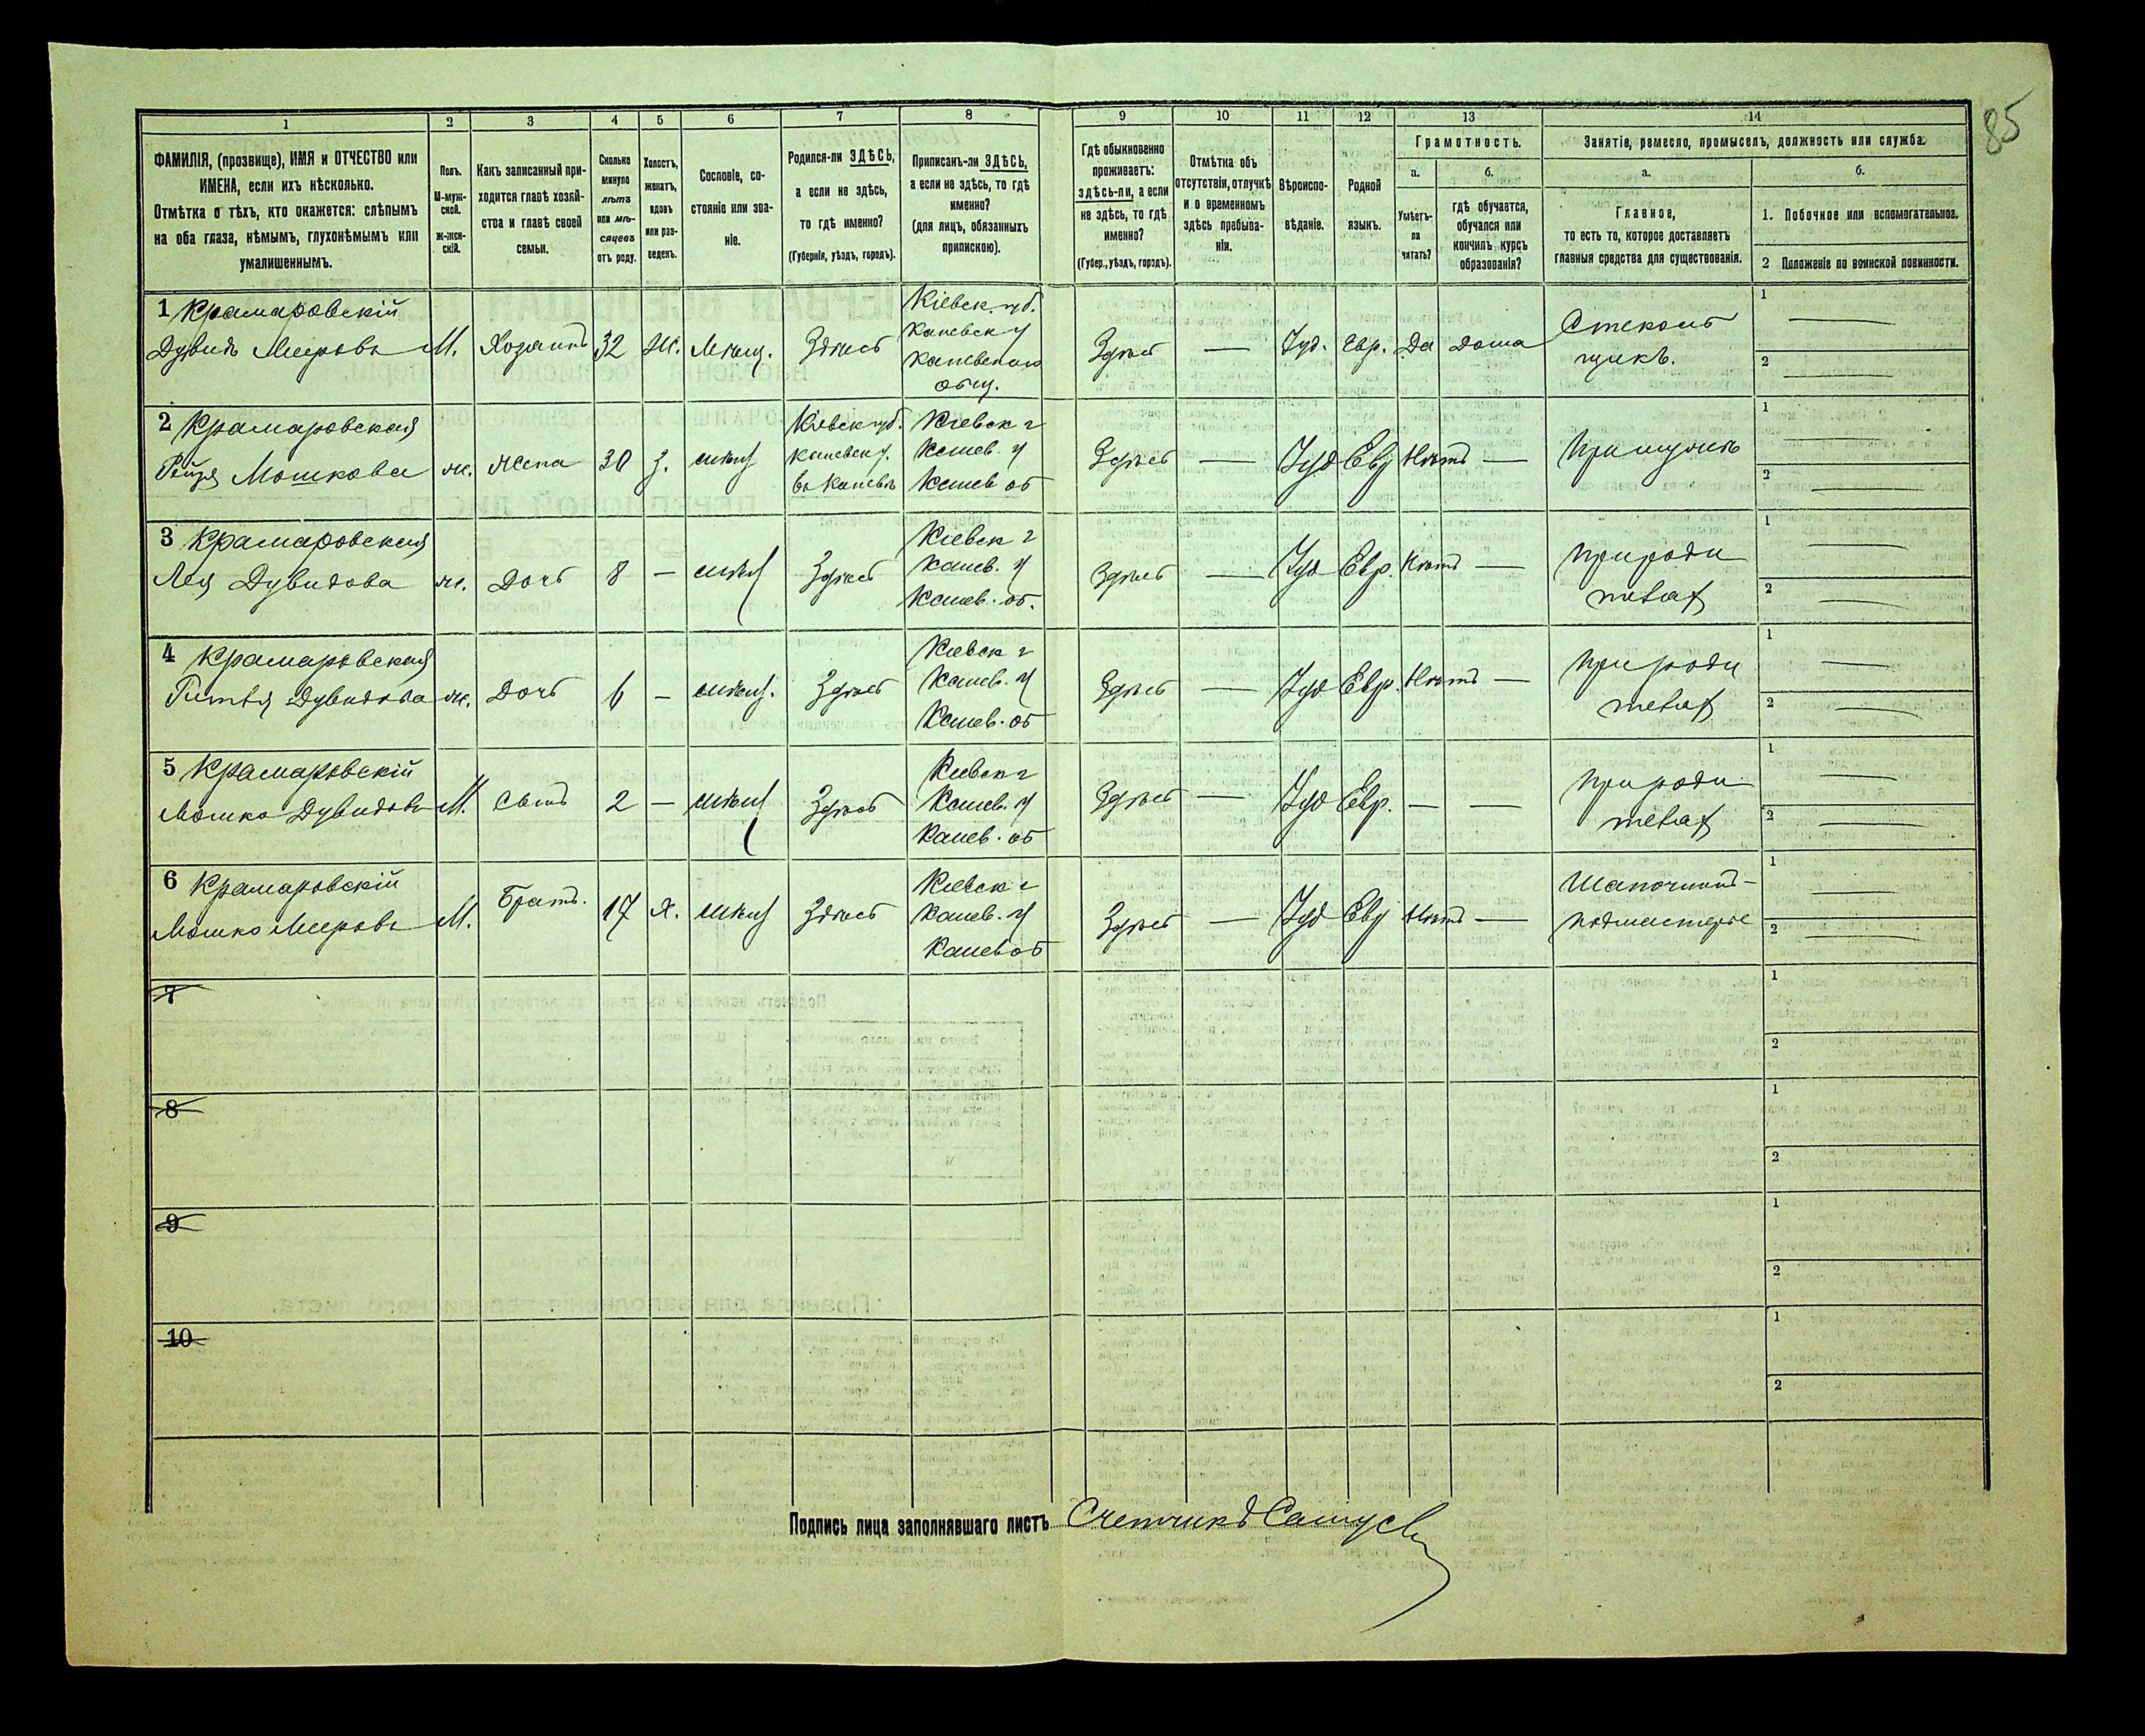 85
1
2
3
4
5
6
7
8
9
10
11
12
13
14
ФАМИЛІЯ, (прозвище), ИМЯ и ОТЧЕСТВО или
ИМЕНА, если ихъ нѣсколько.
Отмѣтка о тѣхъ, кто окажется: слѣпымъ
на оба глаза, нѣмымъ, глухонѣмымъ или
умалишеннымъ.
Полъ.
М-муж-
ской.
ж-жен-
скій.
Какъ записанный при-
ходится главѣ хозяй-
ства и главѣ своей
семьи.
Сколько
минуло
лѣтъ
или мѣ-
сяцевъ
отъ роду.
Холостъ,
женатъ,
вдовъ
или раз-
веденъ.
Сословіе, со-
стояніе или зва-
ніе.
Родился-ли ЗДѢСЬ,
а если не здѣсь,
то гдѣ именно?
(Губернія, уѣздъ, городъ).
Приписанъ-ли ЗДѢСЬ,
а если не здѣсь, то гдѣ
именно?
(для лицъ, обязанныхъ
припискою).
Гдѣ обыкновенно
проживаетъ:
здѣсь-ли, а если
не здѣсь, то гдѣ
именно?
(Губер., уѣздъ, городъ).
Отмѣтка объ
отсутствіи, отлучкѣ
и о временномъ
здѣсь пребыва-
ніи.
Вѣроиспо-
вѣданіе.
Родной
языкъ.
Грамотность.
а.
Умѣетъ-
ли
читать?
б.
гдѣ обучается,
обучался или
кончилъ курсъ
образованія?
Занятіе, ремесло, промыселъ, должность или служба.
а.
Главное,
то есть то, которое доставляетъ
главныя средства для существованія.
б.
1. Побочное или вспомогательное.
2 Положеніе по воинской повинности.
1 Крамаровскій
Дувидъ Мееровъ
М.
Хозяинъ
32
Ж.
Мѣщ.
Здѣсь
Кіевск. губ.
Каневск у
Каневскаго
общ.
Здѣсь
—
Іуд.
Евр.
Да
дома
Стеколь
щикъ.
1 —
2 —
2 Крамаровская
Рейзя Мошкова
ж.
жена
30
З.
мѣщ
Кіевск губ.
Каневск у.
въ Каневѣ
Кіевск г
Канев. у
Канев об
Здѣсь
—
Іуд
Евр
Нѣтъ
—
При мужѣ
1 —
2 —
3 Крамаровская
Лея Дувидова
ж.
Дочь
8
—
мѣщ
Здѣсь
Кіевск г
Канев. у
Канев. об.
Здѣсь
—
Іуд
Евр.
Нѣтъ
—
При роди
теляхъ
1 —
2 —
4 Крамаровская
Дувидова
ж.
Дочь
6
—
мѣщ.
Здѣсь
Кіевск г
Канев. у
Канев. об
Здѣсь
—
Іуд
Евр.
Нѣтъ
—
При роди
теляхъ
1 —
2 —
5 Крамаровскій
Мошко Дувидовъ
М.
Сынъ
2
—
мѣщ
Здѣсь
Кіевск г
Канев. у
Канев. об
Здѣсь
—
Іуд
Евр.
—
—
При роди
теляхъ
1 —
2 —
6 Крамаровскій
Мошко Мееровъ
М.
Братъ.
17
Х.
мѣщ
Здѣсь
Кіевск г
Канев. у
Канев об
Здѣсь
—
Іуд
Евр
Нѣтъ
—
Шапочникъ-
подмастерье
1 —
2 —
7
1
2
8
1
2
9
1
2
10
1
2
Подпись лица заполнявшаго листъ Счетчикъ